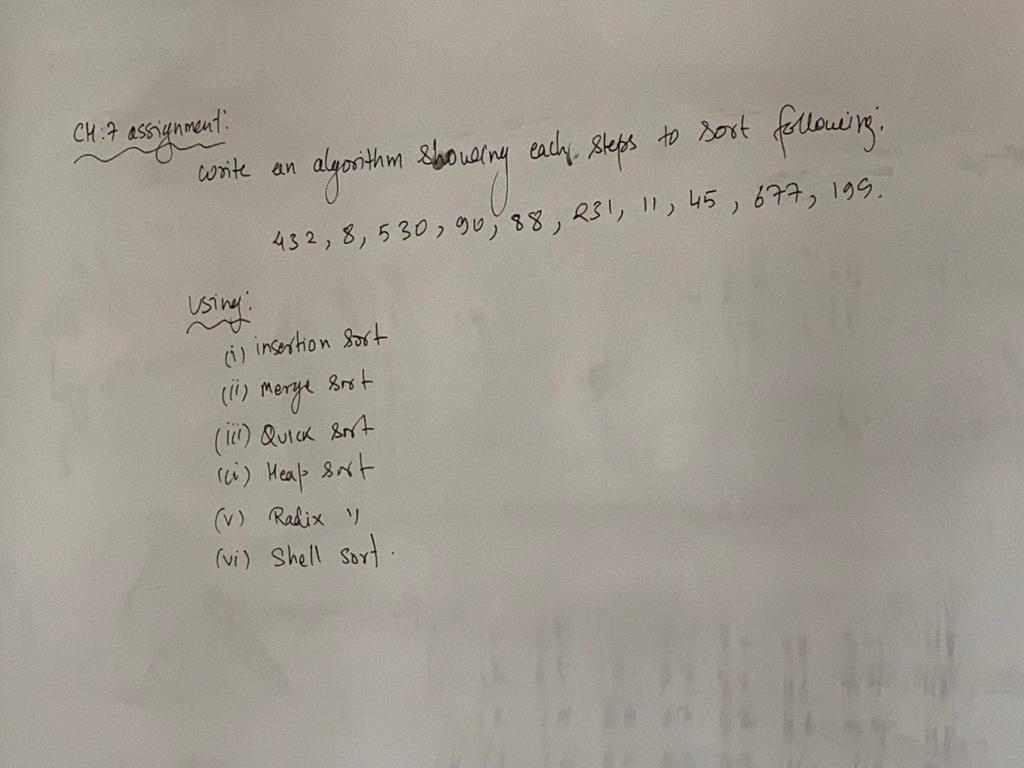 CH:7 assignment:
write an algorithm showing each steps to sort following:
432, 8, 530, 90, 88, 231, 11, 45, 677, 199.
Using:
(i) insertion sort
(ii) merge sort
(iii) Quick sort
(iv) Heap sort
(v) Radix "
(vi) Shell sort.